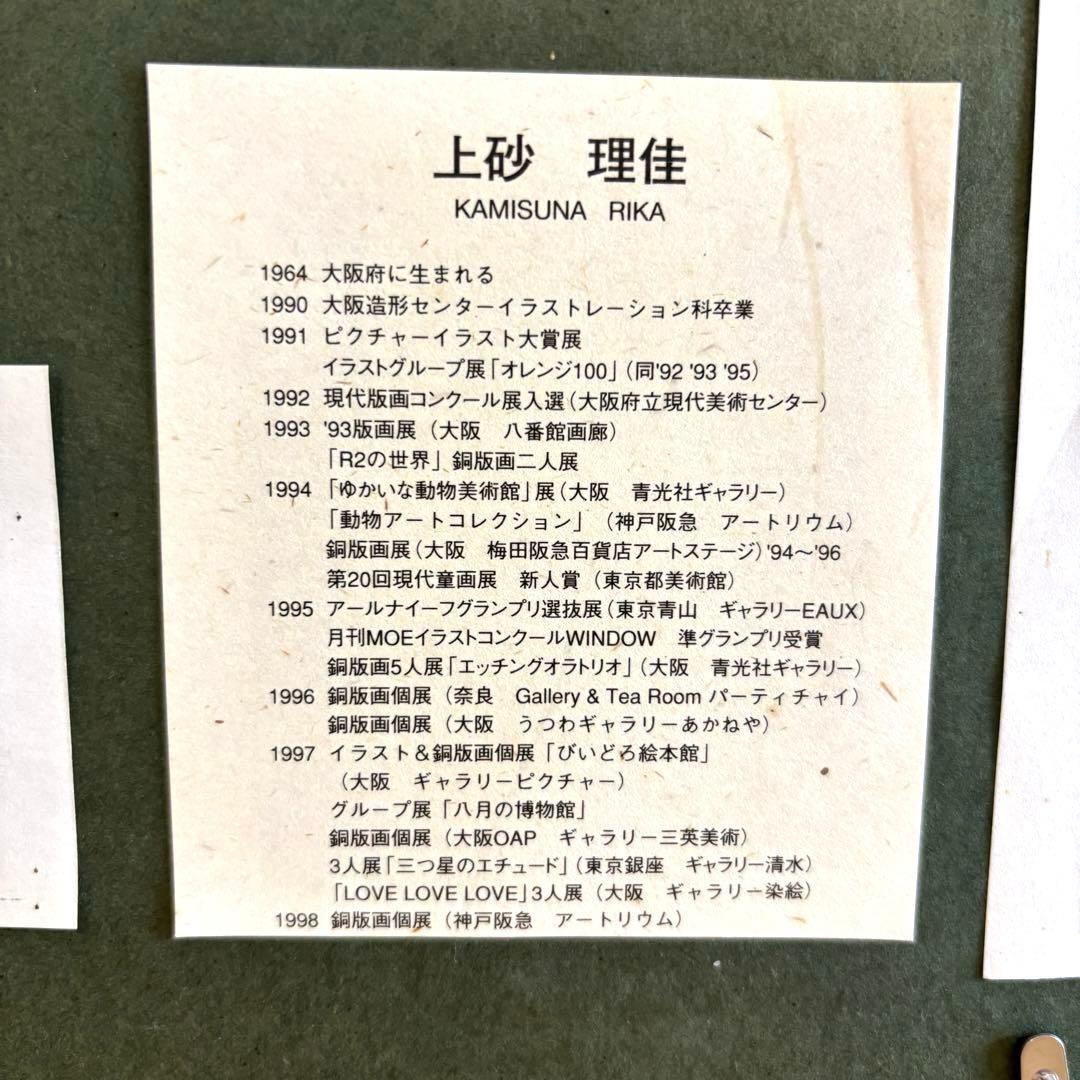 上砂　理佳
KAMISUNA RIKA
1964 大阪府に生まれる
1990 大阪造形センターイラストレーション科卒業
1991 ピクチャーイラスト大賞展
イラストグループ展「オレンジ100」(同'92 '93 '95)
1992 現代版画コンクール展入選(大阪府立現代美術センター)
1993 '93版画展（大阪　八番館画廊）
「R2の世界」銅版画二人展
1994 「ゆかいな動物美術館」展(大阪　青光社ギャラリー)
「動物アートコレクション」（神戸阪急　アートリウム）
銅版画展(大阪　梅田阪急百貨店アートステージ)'94〜'96
第20回現代童画展　新人賞（東京都美術館）
1995 アールナイーフグランプリ選抜展(東京青山　ギャラリーEAUX)
月刊MOEイラストコンクールWINDOW　準グランプリ受賞
銅版画5人展「エッチングオラトリオ」(大阪　青光社ギャラリー)
1996 銅版画個展（奈良　Gallery & Tea Room パーティチャイ）
銅版画個展（大阪　うつわギャラリーあかねや）
1997 イラスト＆銅版画個展「びいどろ絵本館」
（大阪　ギャラリーピクチャー）
グループ展「八月の博物館」
銅版画個展（大阪OAP　ギャラリー三英美術）
3人展「三つ星のエチュード」(東京銀座　ギャラリー清水)
「LOVE LOVE LOVE」3人展（大阪　ギャラリー染絵）
1998 銅版画個展（神戸阪急　アートリウム）